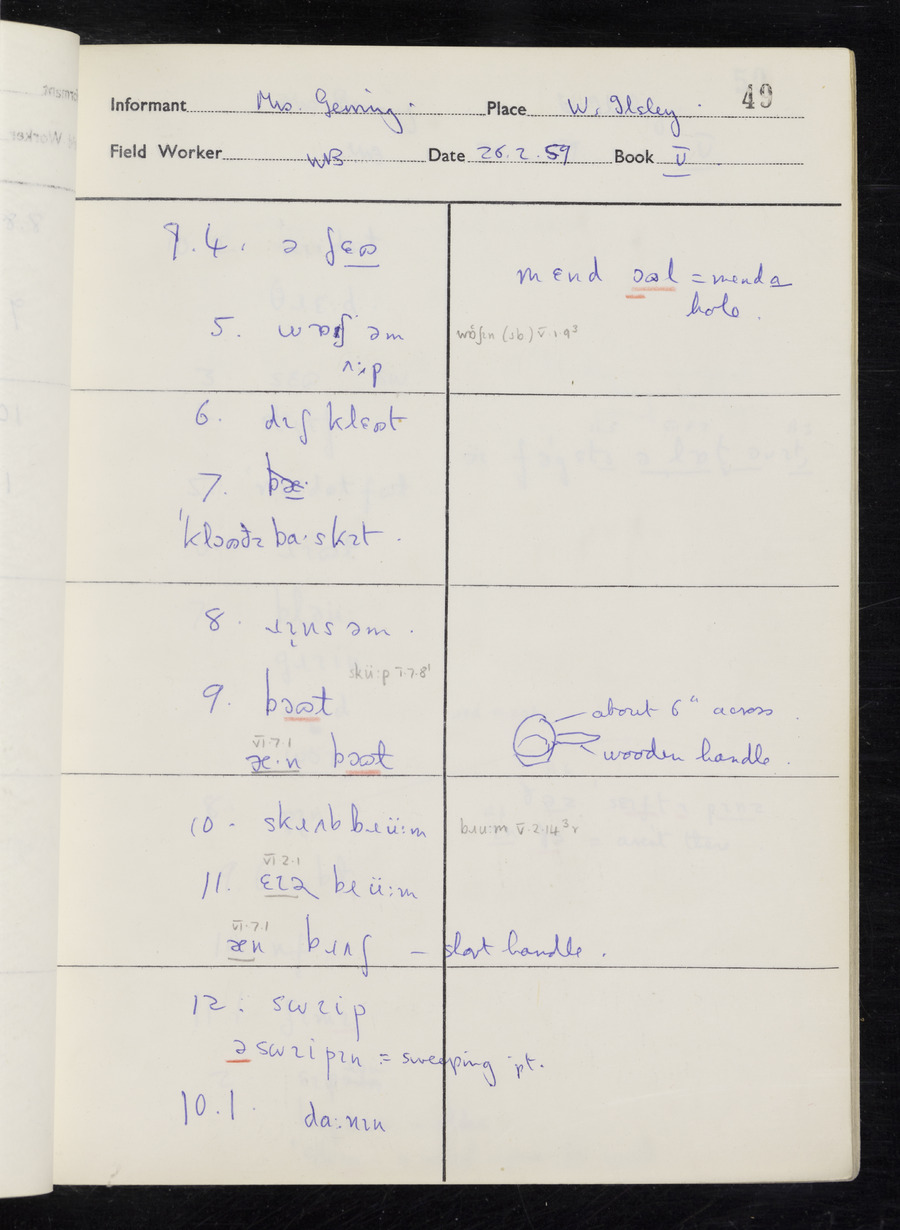 49
Informant Mrs. Gening. Place W. Ilsley.
Field Worker WB Date 26.2.59 Book V
9.4. ə ʃɛə
mend ɔʊl = mend a
hole.
5. wɒʃ əm
ʌ:p
wɒ̈ʃɪn (sb) V.1.9³
6. dɪʃ klɛʊt
7.
'klɔʊðz ba·skɪt.
8. ɹɪ̣ns əm.
skü:p V.7.8¹
9. bɔʊt
about 6" across
VI.7.1
æ·n bɔʊt
wooden handle.
10. skɹʌb bɹü:m
bɹu:m V.2.14³ r
VI.2.1
11. ɛɪə bɹü:m
VI.7.1
æn bɹʌʃ – short handle.
12. swɪip
ə swɪipɪn = sweeping pt.
10.1. da:nɪn